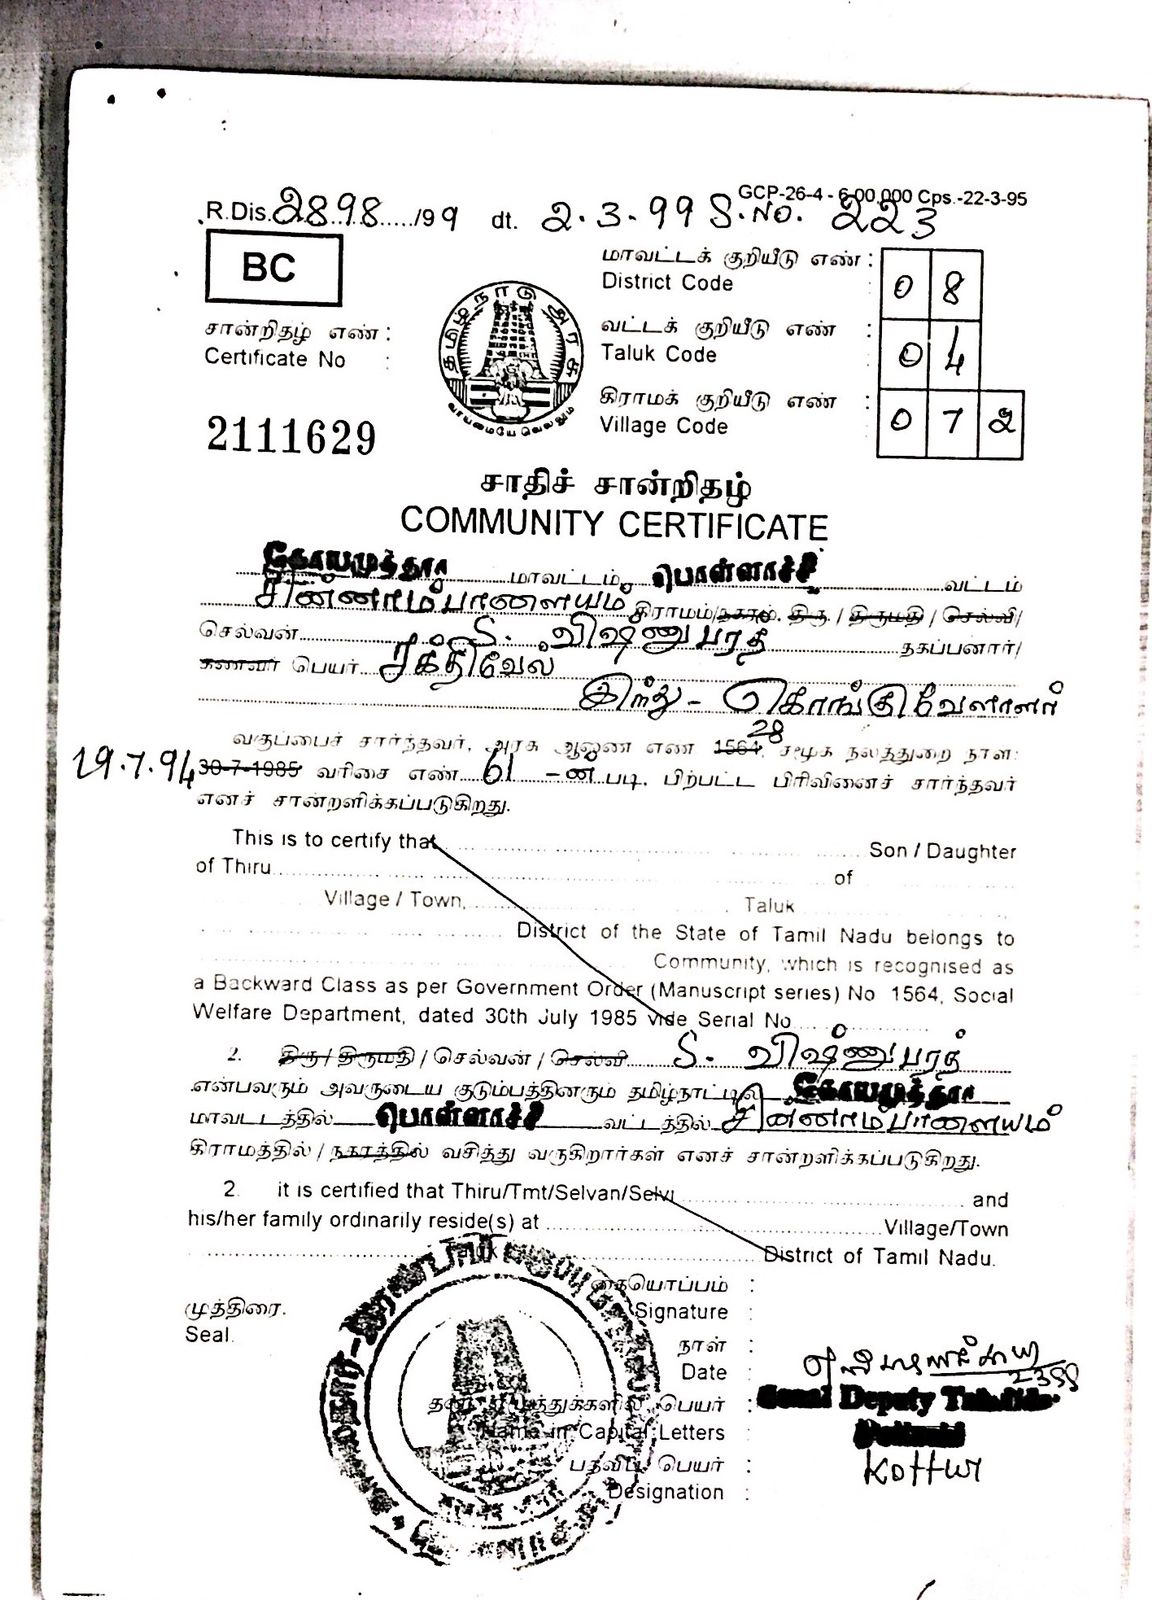 GCP-26-4 - 6,00,000 Cps.-22-3-95
R.Dis. 2898 /99 dt. 2.3.99 S.No. 223
BC
மாவட்டக் குறியீடு எண் :
District Code
0 8
சான்றிதழ் எண் :
Certificate No :
வட்டக் குறியீடு எண் :
Taluk Code
0 4
கிராமக் குறியீடு எண் :
Village Code
0 7 2
தமிழ்நாடு அரசு
வாய்மையே வெல்லும்
2111629
சாதிச் சான்றிதழ்
COMMUNITY CERTIFICATE
கோயமுத்தூர் மாவட்டம் பொள்ளாச்சி வட்டம்
சின்னாம்பாளையம் கிராமம்/நகரம். திரு. / திருமதி / செல்வி/
செல்வன் S. விஷ்ணு பரத் தகப்பனார்/
கணவர் பெயர் சக்திவேல்
இந்து - கொங்கு வேளாளர்
வகுப்பைச் சார்ந்தவர், அரசு ஆணை எண் 1564, 28 சமூக நலத்துறை நாள:
19.7.94 30-7-1985 வரிசை எண் 61 -ன் படி, பிற்பட்ட பிரிவினைச் சார்ந்தவர்
எனச் சான்றளிக்கப்படுகிறது.
This is to certify that Son / Daughter
of Thiru of
Village / Town, Taluk
District of the State of Tamil Nadu belongs to
Community, which is recognised as
a Backward Class as per Government Order (Manuscript series) No 1564, Social
Welfare Department, dated 30th July 1985 vide Serial No
2. திரு/ திருமதி / செல்வன் / செல்வி S. விஷ்ணு பரத்
என்பவரும் அவருடைய குடும்பத்தினரும் தமிழ்நாட்டில் கோயமுத்தூர்
மாவட்டத்தில் பொள்ளாச்சி வட்டத்தில் சின்னாம்பாளையம்
கிராமத்தில் / நகரத்தில் வசித்து வருகிறார்கள் எனச் சான்றளிக்கப்படுகிறது.
2. it is certified that Thiru/Tmt/Selvan/Selvi and
his/her family ordinarily reside(s) at Village/Town
Taluk District of Tamil Nadu.
கையொப்பம் :
முத்திரை.
Signature :
Seal.
நாள் :
Date :
பெயர் :
Name in Capital Letters :
பதவிப் பெயர் :
Designation :
Deputy
Kottur